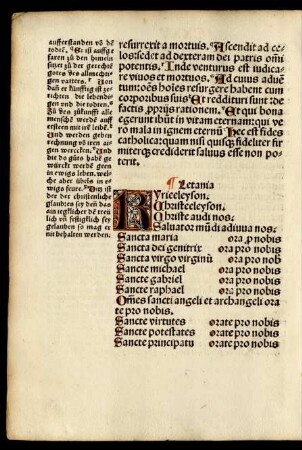 aufferstanden võ dē
todeñ. Er ist auffge
faren zu den himeln
sitzet zů der gerechtē
gotes des allmechti-
gen vatters. Von
dañ er künfftig ist ze-
richten die lebendi-
gen vnd die todten.
Zů des zůkunfft alle
menschē werdē auff
ersteen mit irē leibē.
Vnd werden geben
rechnung võ iren aig-
en wercken. Vnd
die do gůts habē ge
würckt werden geen
in ewigs leben. welch-
e aber übels in ewi-
gs feure. Diß ist
der der christenliche
glaubē sey deñ das
ain yeglicher dē treü
lich vñ festigklich
gelauben so mag er
nit behalten werden.
resurrexit a mortuis. Ascendit ad ce-
los: sedet ad dexteram dei patris omni
potentis. Inde venturus est iudica-
re viuos et mortuos. Ad cuius aduē
tum: oēs hoīes resurgere habent cum
corporibus suis Et reddituri sunt de
factis ꝓprijs rationem. Et qui bona
egerunt ibūt in vitam eternam: qui ve
ro mala in ignem eternū Hec est fides
catholica: quam nisi quisq̃ fideliter fir
miterq̃ crediderit saluus esse non po-
terit.
¶ Letania
Kyrieeleyson.
Christeeleyson.
Christe audi nos.
Saluator mūdi adiuua nos.
Sancta maria ora ꝓ nobis
Sancta dei genitrix ora pro nobis
Sancta virgo virginū ora pro nob
Sancte michael ora pro nobis
Sancte gabriel ora pro nobis
Sancte raphael ora pro nobis
Om̃es sancti angeli et archangeli ora
te pro nobis.
Sancte virtutes orate pro nobis
Sancte potestates orate pro nobis
Sancte principatū orate pro nobis